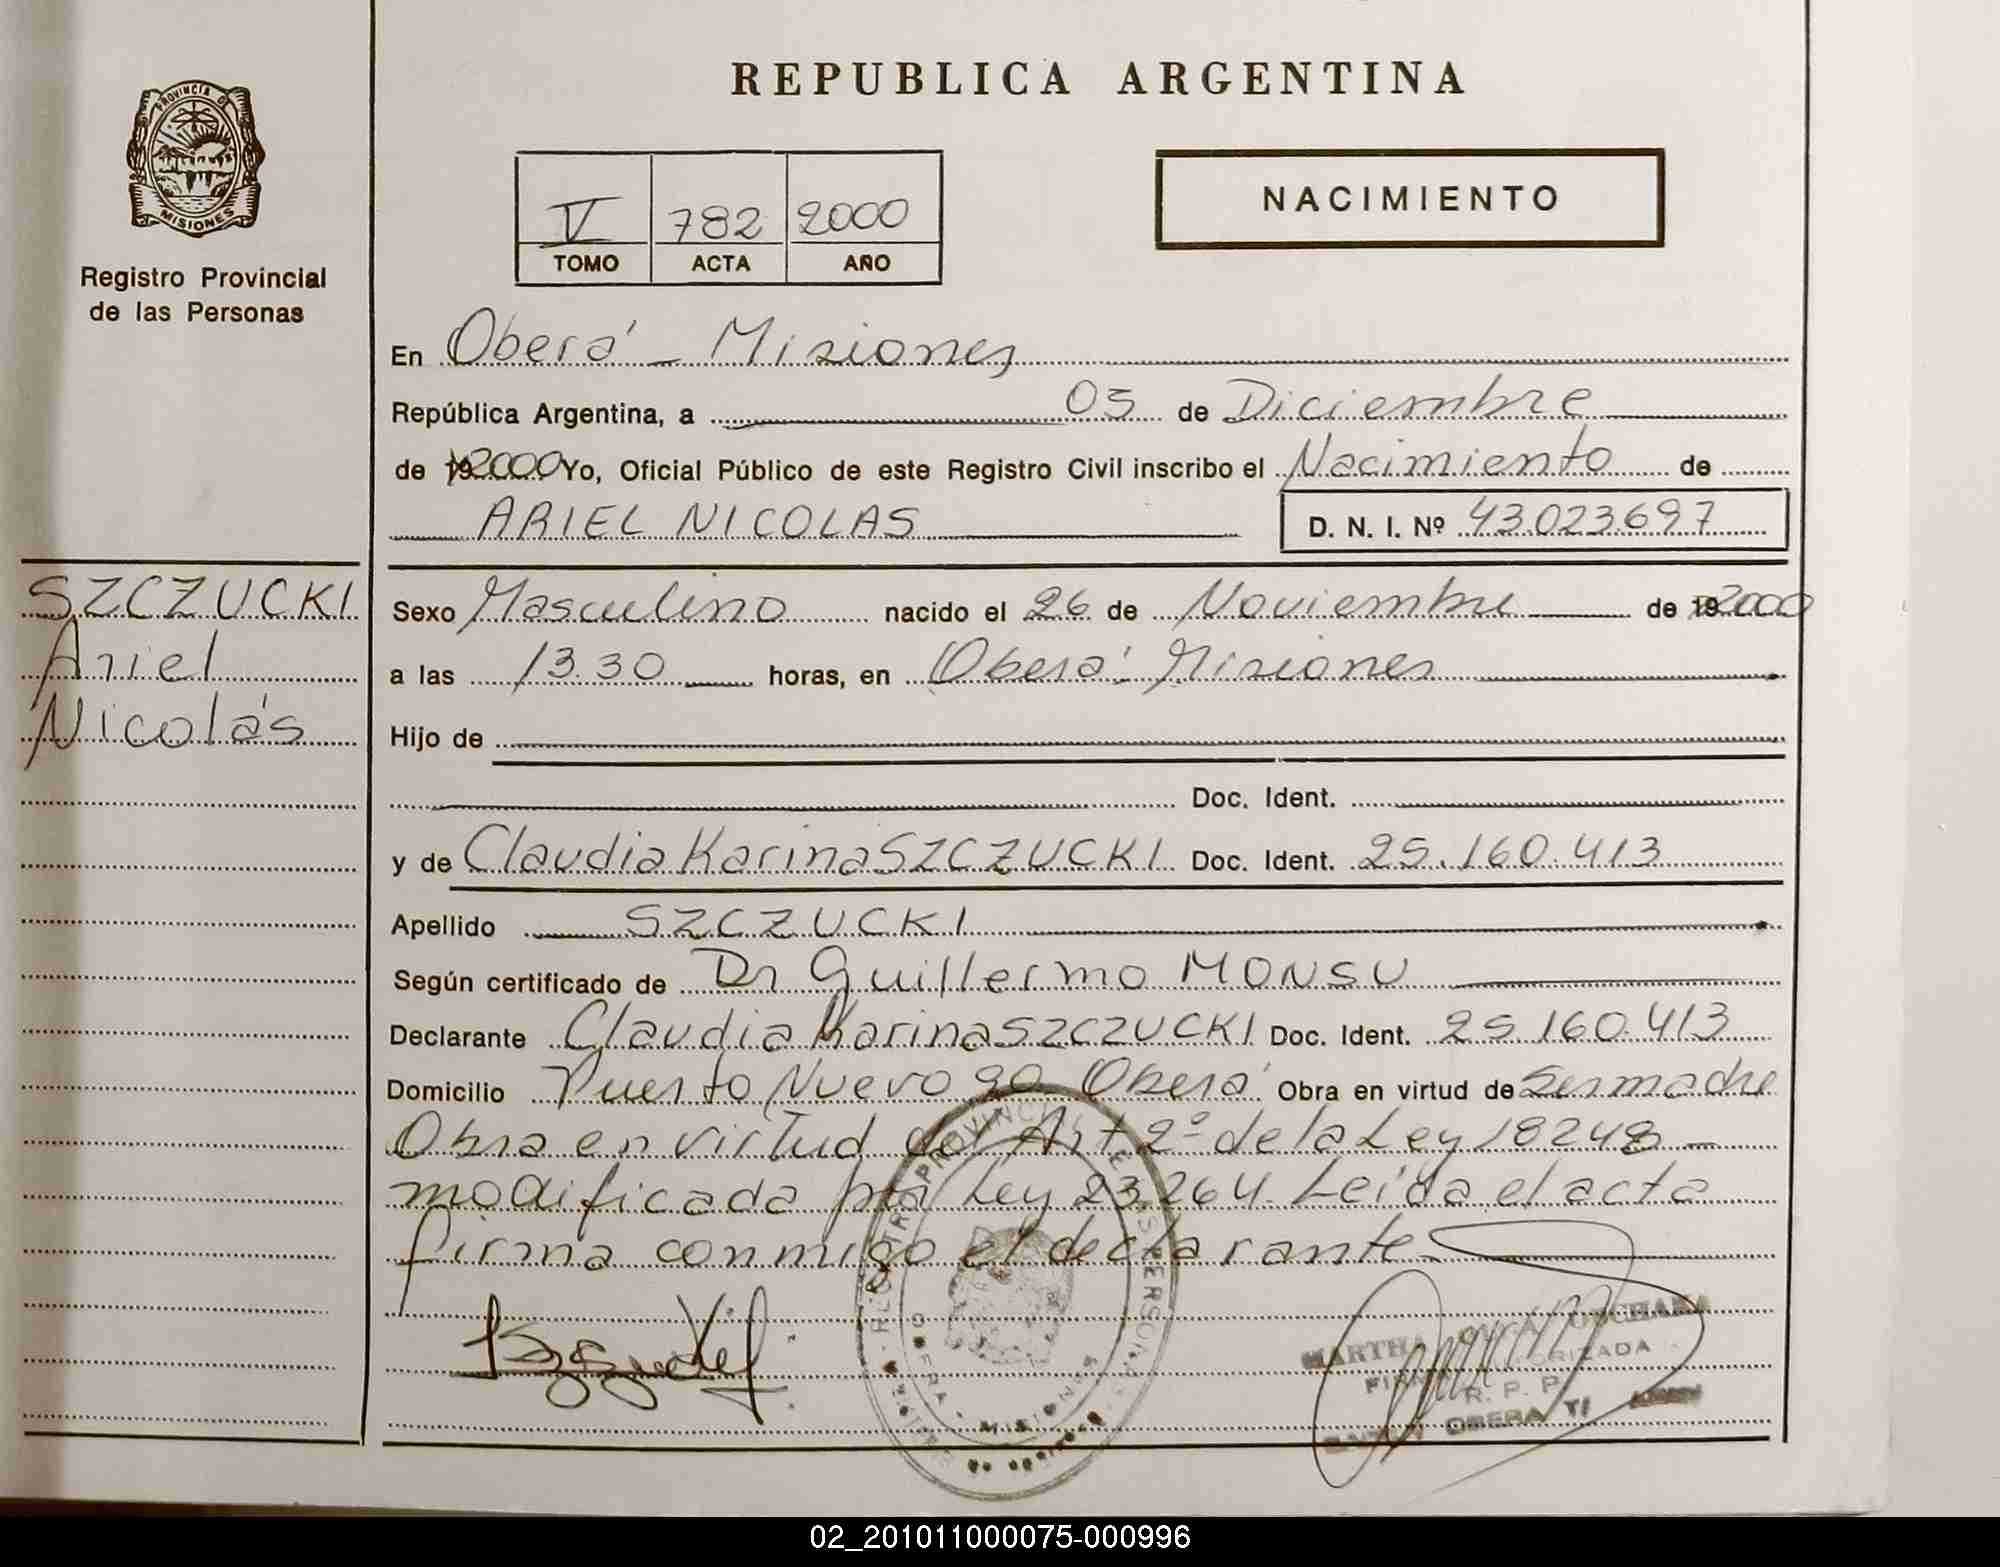 PROVINCIA DE
MISIONES
Registro Provincial
de las Personas
SZCZUCKI
Ariel
Nicolás
REPUBLICA ARGENTINA
V 782 2000
TOMO ACTA AÑO
NACIMIENTO
En Oberá - Misiones
República Argentina, a 05 de Diciembre
de 19 2000 Yo, Oficial Público de este Registro Civil inscribo el Nacimiento de
ARIEL NICOLAS D. N. I. Nº 43.023.697
Sexo Masculino nacido el 26 de Noviembre de 19 2000
a las 13.30 horas, en Oberá - Misiones
Hijo de
Doc. Ident.
y de Claudia Karina SZCZUCKI Doc. Ident. 25.160.413
Apellido SZCZUCKI
Según certificado de Dr Guillermo MONSU
Declarante Claudia Karina SZCZUCKI Doc. Ident. 25.160.413
Domicilio Puerto Nuevo Oberá Obra en virtud de Ser madre
Obra en virtud del Art 2º de la Ley 18248 -
modificada por Ley 23.264. Leída el acta
firma conmigo el declarante
MARTHA
FIRMA AUTORIZADA
R. P. P.
OBERA
02_201011000075-000996